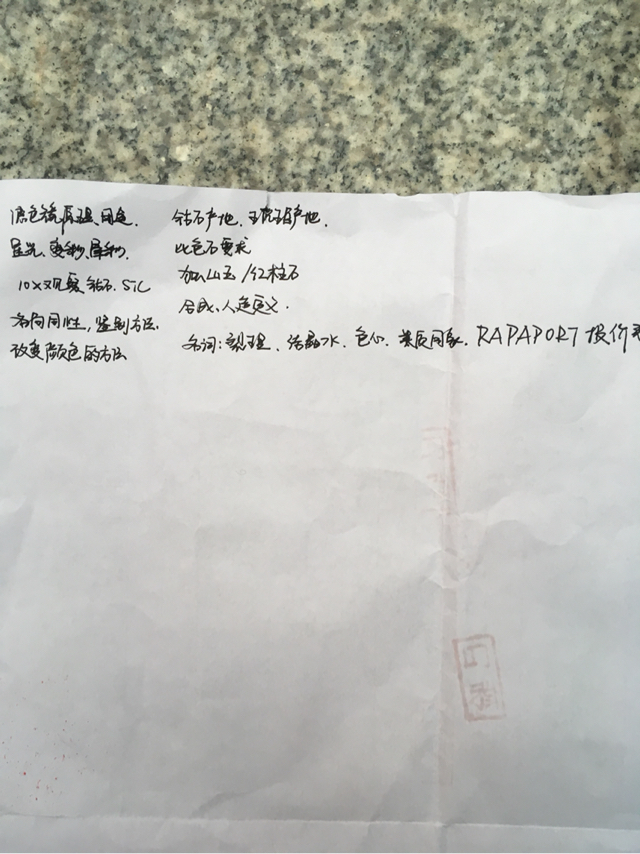 滤色镜原理、用途.
星光、变彩、晕彩.
10×观察钻石、SiC
各向同性，鉴别方法.
改变颜色的方法
钻石产地、产地.
比色石要求
加山玉/红柱石
合成、人造定义.
名词：裂理、结晶水、色心、类质同象、RAPAPORT报价